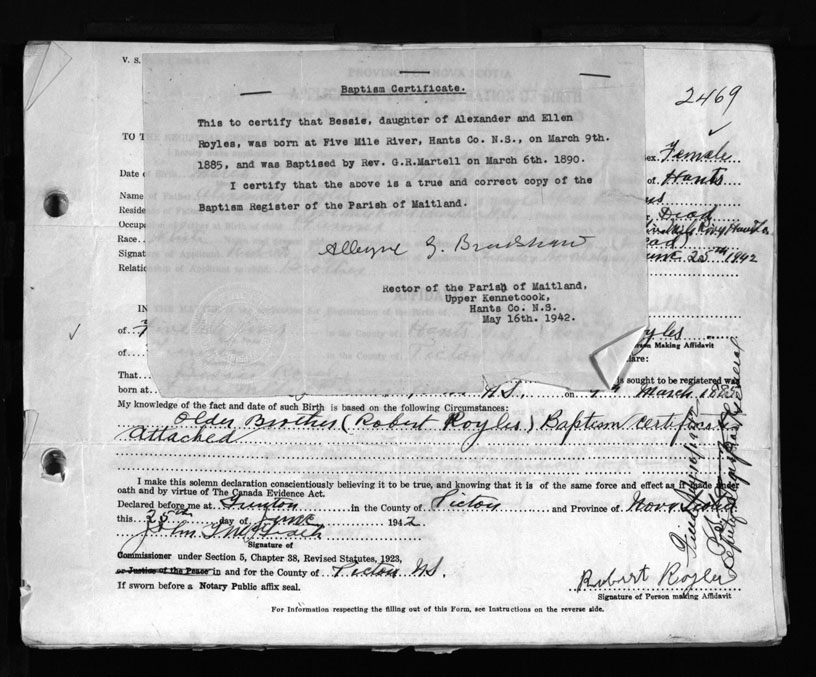 V. S.
PROVINCE OF NOVA SCOTIA
Baptism Certificate.
2469
This to certify that Bessie, daughter of Alexander and Ellen
Royles, was born at Five Mile River, Hants Co. N.S., on March 9th.
1885, and was Baptised by Rev. G.R.Martell on March 6th. 1890.
I certify that the above is a true and correct copy of the
Baptism Register of the Parish of Maitland.
Rector of the Parish of Maitland,
Upper Kennetcook,
Hants Co. N.S.
May 16th. 1942.
TO T
Date
Name
Reside
Occup
Race
Signat
Relatio
Female
of Hants
Dead
25th 1942
IN
of
of
Royles
Person Making Affidavit
That
is sought to be registered was
born at N.S., on 9th March 1885
My knowledge of the fact and date of such Birth is based on the following Circumstances:
Older Brother (Robert Royles) Baptism Certificate
attached
I make this solemn declaration conscientiously believing it to be true, and knowing that it is of the same force and effect as if made under
oath and by virtue of The Canada Evidence Act.
Declared before me at in the County of Pictou and Province of Nova Scotia
this 25th day of June 1942
Signature of
Commissioner under Section 5, Chapter 38, Revised Statutes, 1923,
or Justice of the Peace in and for the County of Pictou N.S.
If sworn before a Notary Public affix seal.
Robert Royles
Signature of Person making Affidavit
For Information respecting the filling out of this Form, see Instructions on the reverse side.
Deputy Registrar General